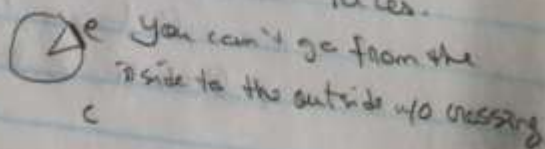 e You can't go from the
inside to the outside w/o crossing
c